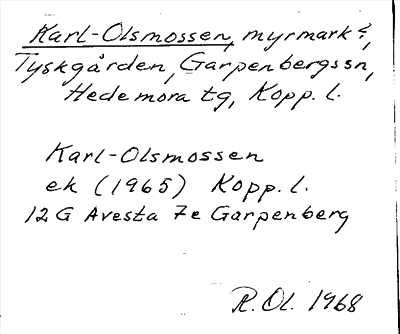 Karl-Olsmossen, myrmark?,
Tyskgården, Garpenbergs sn,
Hedemora tg, Kopp. l.
Karl-Olsmossen
ek (1965) Kopp. l.
12 G Avesta 7e Garpenberg
R. Ol. 1968